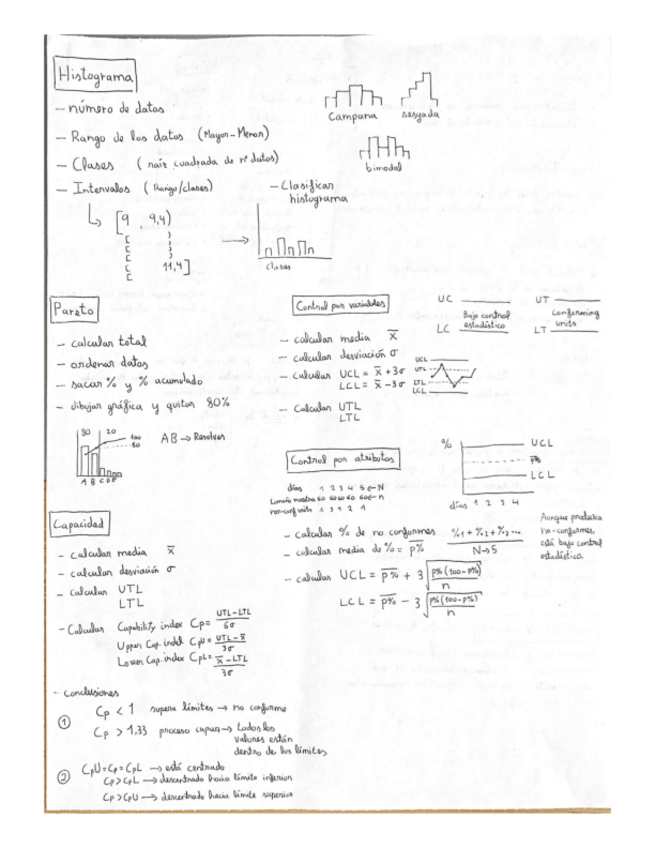 Histograma
– número de datos
– Rango de los datos (Mayor – Menor)
– Clases ( raíz cuadrada de nº datos)
– Intervalos ( Rango/clases)
[9 , 9,4)
11,4]
Campana
sesgada
bimodal
– Clasificar
histograma
clases
Pareto
– calcular total
– ordenar datos
– sacar % y % acumulado
– dibujar gráfica y quitar 80%
80 20
100
80
A B C D E
AB → Resolver
Capacidad
– calcular media x̅
– calcular desviación σ
– calcular UTL
LTL
– Calcular Capability index Cp = UTL – LTL / 6σ
Upper Cap. index CpU = UTL – x̅ / 3σ
Lower Cap. index CpL = x̅ – LTL / 3σ
– Conclusiones
① Cp < 1 supera límites → no conforme
Cp > 1,33 proceso capaz → todos los
valores están
dentro de los límites
② CpU = Cp = CpL → está centrado
Cp > CpL → descentrado hacia límite inferior
Cp > CpU → descentrado hacia límite superior
Control por variables
– calcular media x̅
– calcular desviación σ
– calcular UCL = x̅ + 3σ
LCL = x̅ – 3σ
– Calcular UTL
LTL
UC
Bajo control
LC estadístico
UT
Conforming
LT units
UCL
UTL
LTL
LCL
Control por atributos
días 1 2 3 4 5 ← N
Tamaño muestra 60 60 60 60 60 ← n
non-conf units 1 3 1 2 1
% UCL
p%
LCL
días 1 2 3 4
Aunque produzca
no-conformes,
está bajo control
estadístico.
– calcular % de no conformes
– calcular media de % = p̅% %1 + %2 + %3 ... / N → 5
– calcular UCL = p̅% + 3 √ p% (100 – p%) / n
LCL = p̅% – 3 √ p% (100 – p%) / n